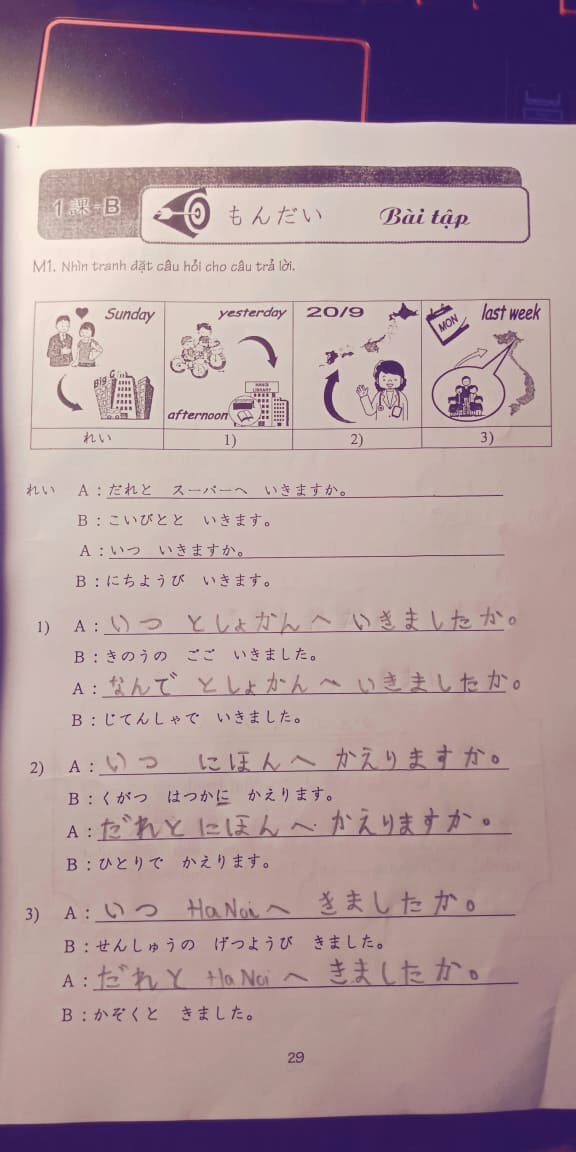 1課-B
もんだい Bài tập
M1. Nhìn tranh đặt câu hỏi cho câu trả lời.
Sunday yesterday 20/9 MON last week
Big C HANOI LIBRARY
afternoon
れい 1) 2) 3)
れい A : だれと スーパーへ いきますか。
B : こいびとと いきます。
A : いつ いきますか。
B : にちようび いきます。
1) A : いつ としょかんへ いきましたか。
B : きのうの ごご いきました。
A : なんで としょかんへ いきましたか。
B : じてんしゃで いきました。
2) A : いつ にほんへ かえりますか。
B : くがつ はつかに かえります。
A : だれと にほんへ かえりますか。
B : ひとりで かえります。
3) A : いつ HaNoiへ きましたか。
B : せんしゅうの げつようび きました。
A : だれと HaNoiへ きましたか。
B : かぞくと きました。
29